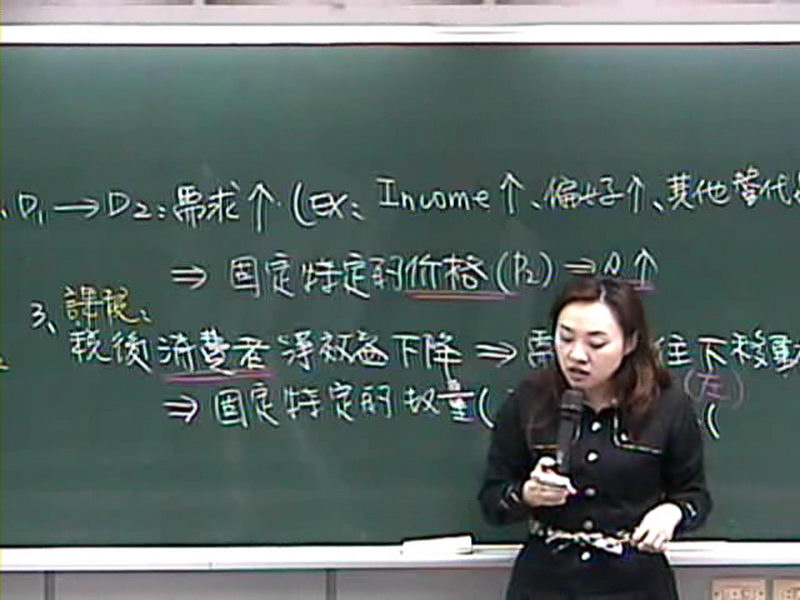 、D₁→D₂:需求↑(EX: Income↑、偏好↑、其他替代
⇒ 固定特定的价格(P₂)⇒Q↑
3、課稅:
稅後消費者淨效益下降⇒需 往下移動
(左)
⇒固定特定的数量( (